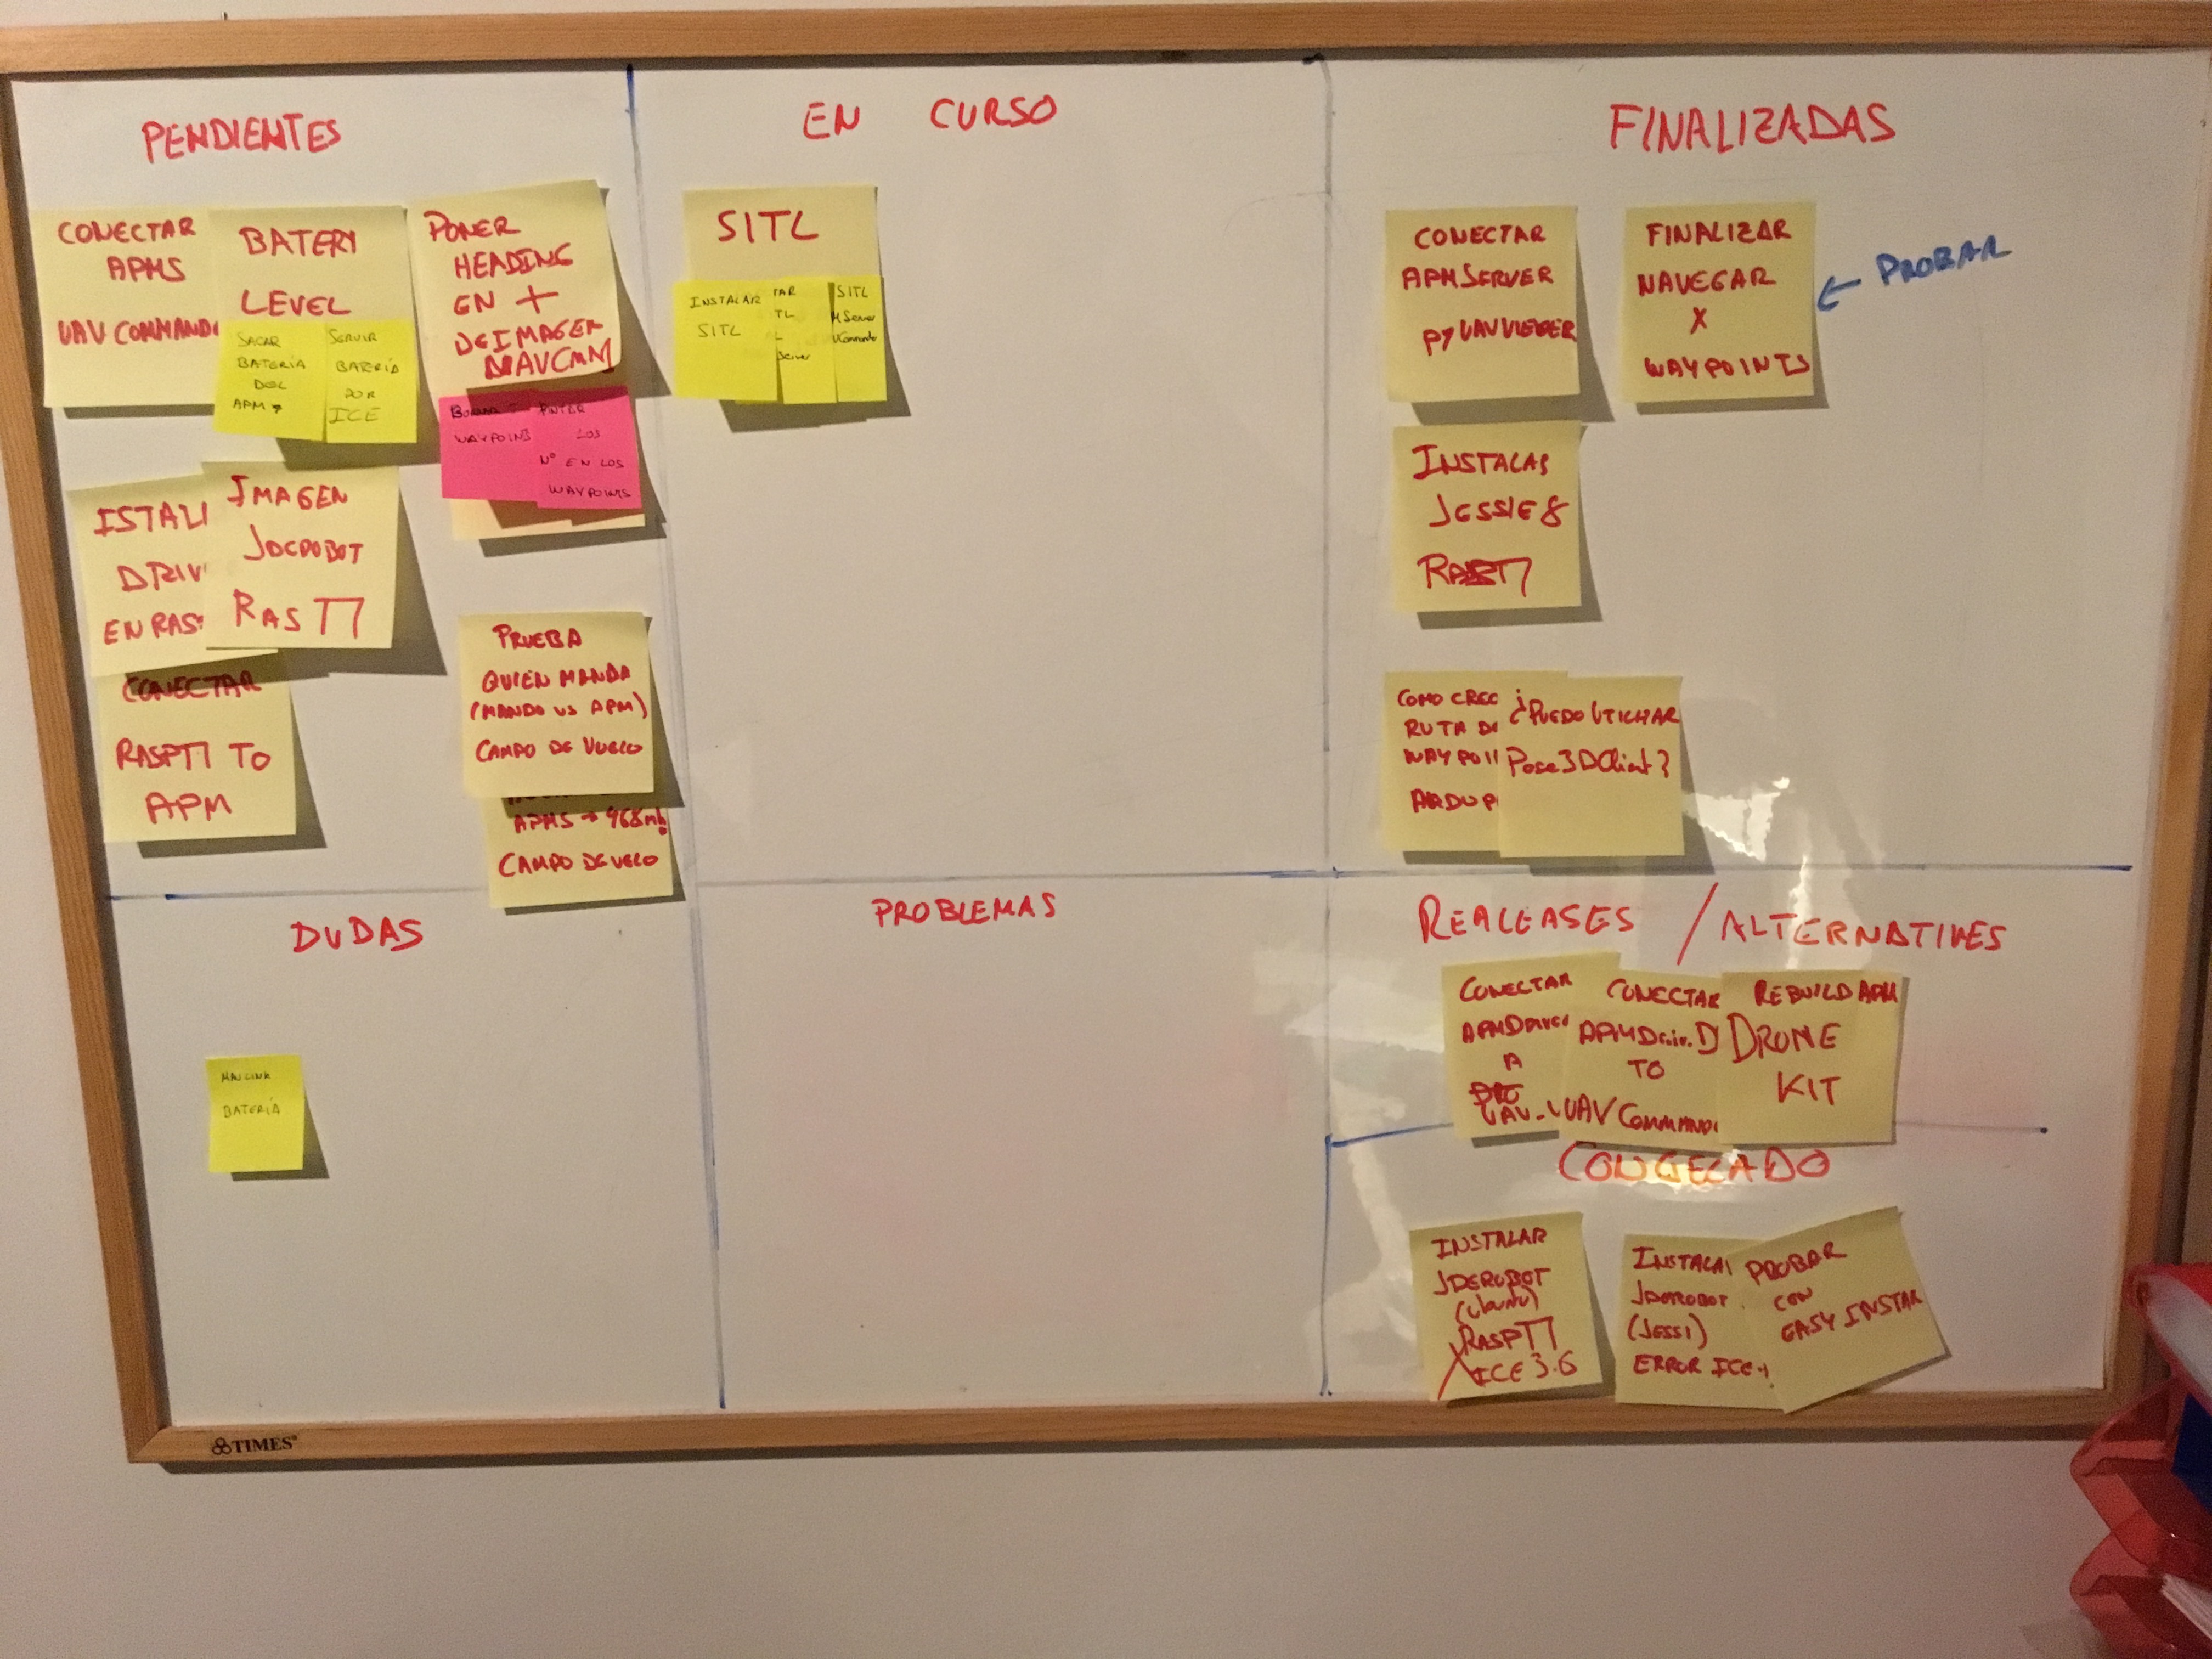 PENDIENTES
CONECTAR
APMS
UAV COMMAND
BATERY
LEVEL
SACAR
BATERÍA
DEL
APM
SERVIR
BATERÍA
POR
ICE
PONER
HEADING
EN +
DE IMAGEN
WAYPOINTS
PINTER
LOS
Nº EN LOS
WAYPOINTS
ISTAL
DRIV
EN RAS
IMAGEN
JDEROBOT
RAS
CONECTAR
TO
APM
PRUEBA
QUIEN MANDA
(MANDO VS APM)
CAMPO DE VUELO
APMS → 968mh
CAMPO DE VUELO
EN CURSO
SITL
INSTALAR
SITL
TAR
TL
L
Server
SITL
MServer
VCommander
FINALIZADAS
CONECTAR
APMSERVER
PY UAVVIEWER
FINALIZAR
NAVEGAR
X
WAYPOINTS
← PROBAR
INSTALAR
JESSIE 8
COMO CREO
RUTA DE
WAYPOI
ARDUP
¿PUEDO UTILIZAR
Pose3DClient?
DUDAS
MAVLINK
BATERÍA
PROBLEMAS
REALEASES / ALTERNATIVES
CONECTAR
APMDriver
A
UAV-V
CONECTAR
APMDriv.
TO
UAV COMMAND
REBUILD APM
DRONE
KIT
CONGELADO
INSTALAR
JDEROBOT
(Ubuntu)
ICE 3.6
INSTALA
JDEROBOT
(JESSI)
ERROR ICE
PROBAR
CON
EASY INSTAR
TIMES